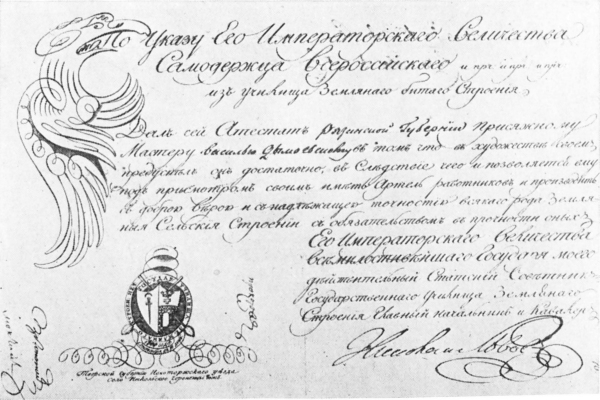 По Указу Его Императорскаго Величества
Самодержца Всероссийскаго и пр: и пр: и пр:
изъ училища Землянаго битаго Строения
Данъ сей Атестатъ Рязинской Губернии присяжному
Мастеру Василью въ томъ что въ художестве своемъ
онъ достаточно, въ Следствие чего и позволяется ему
подъ присмотромъ своимъ иметь Артель работниковъ и производить
съ доброю Верою и съ надлежащею точностию всякаго рода Земля
ныя Сельския Строении съ обязательствомъ въ прочности оныхъ
Его Императорскаго Величества
Всемилостивейшаго Государя моего
действительный Статский Советникъ
Государственнаго Училища Землянаго
Строения Главный начальникъ и Кавалеръ
Николай Львовъ
Тверской Губернии Новоторжскаго уезда
Село Никольское